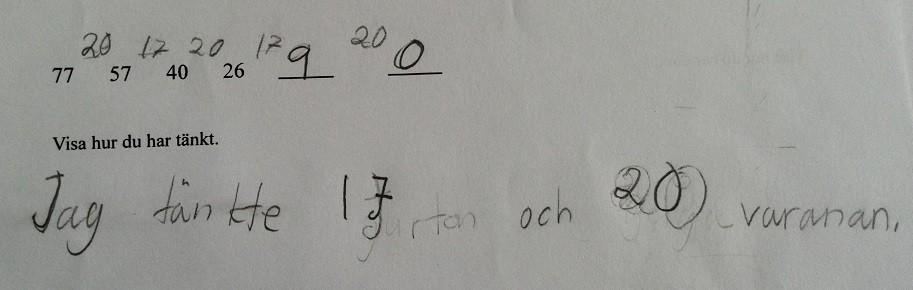 20 17 20 17 20
77 57 40 26 9 0
Visa hur du har tänkt.
Jag tänkte 17 och 20 varanan.